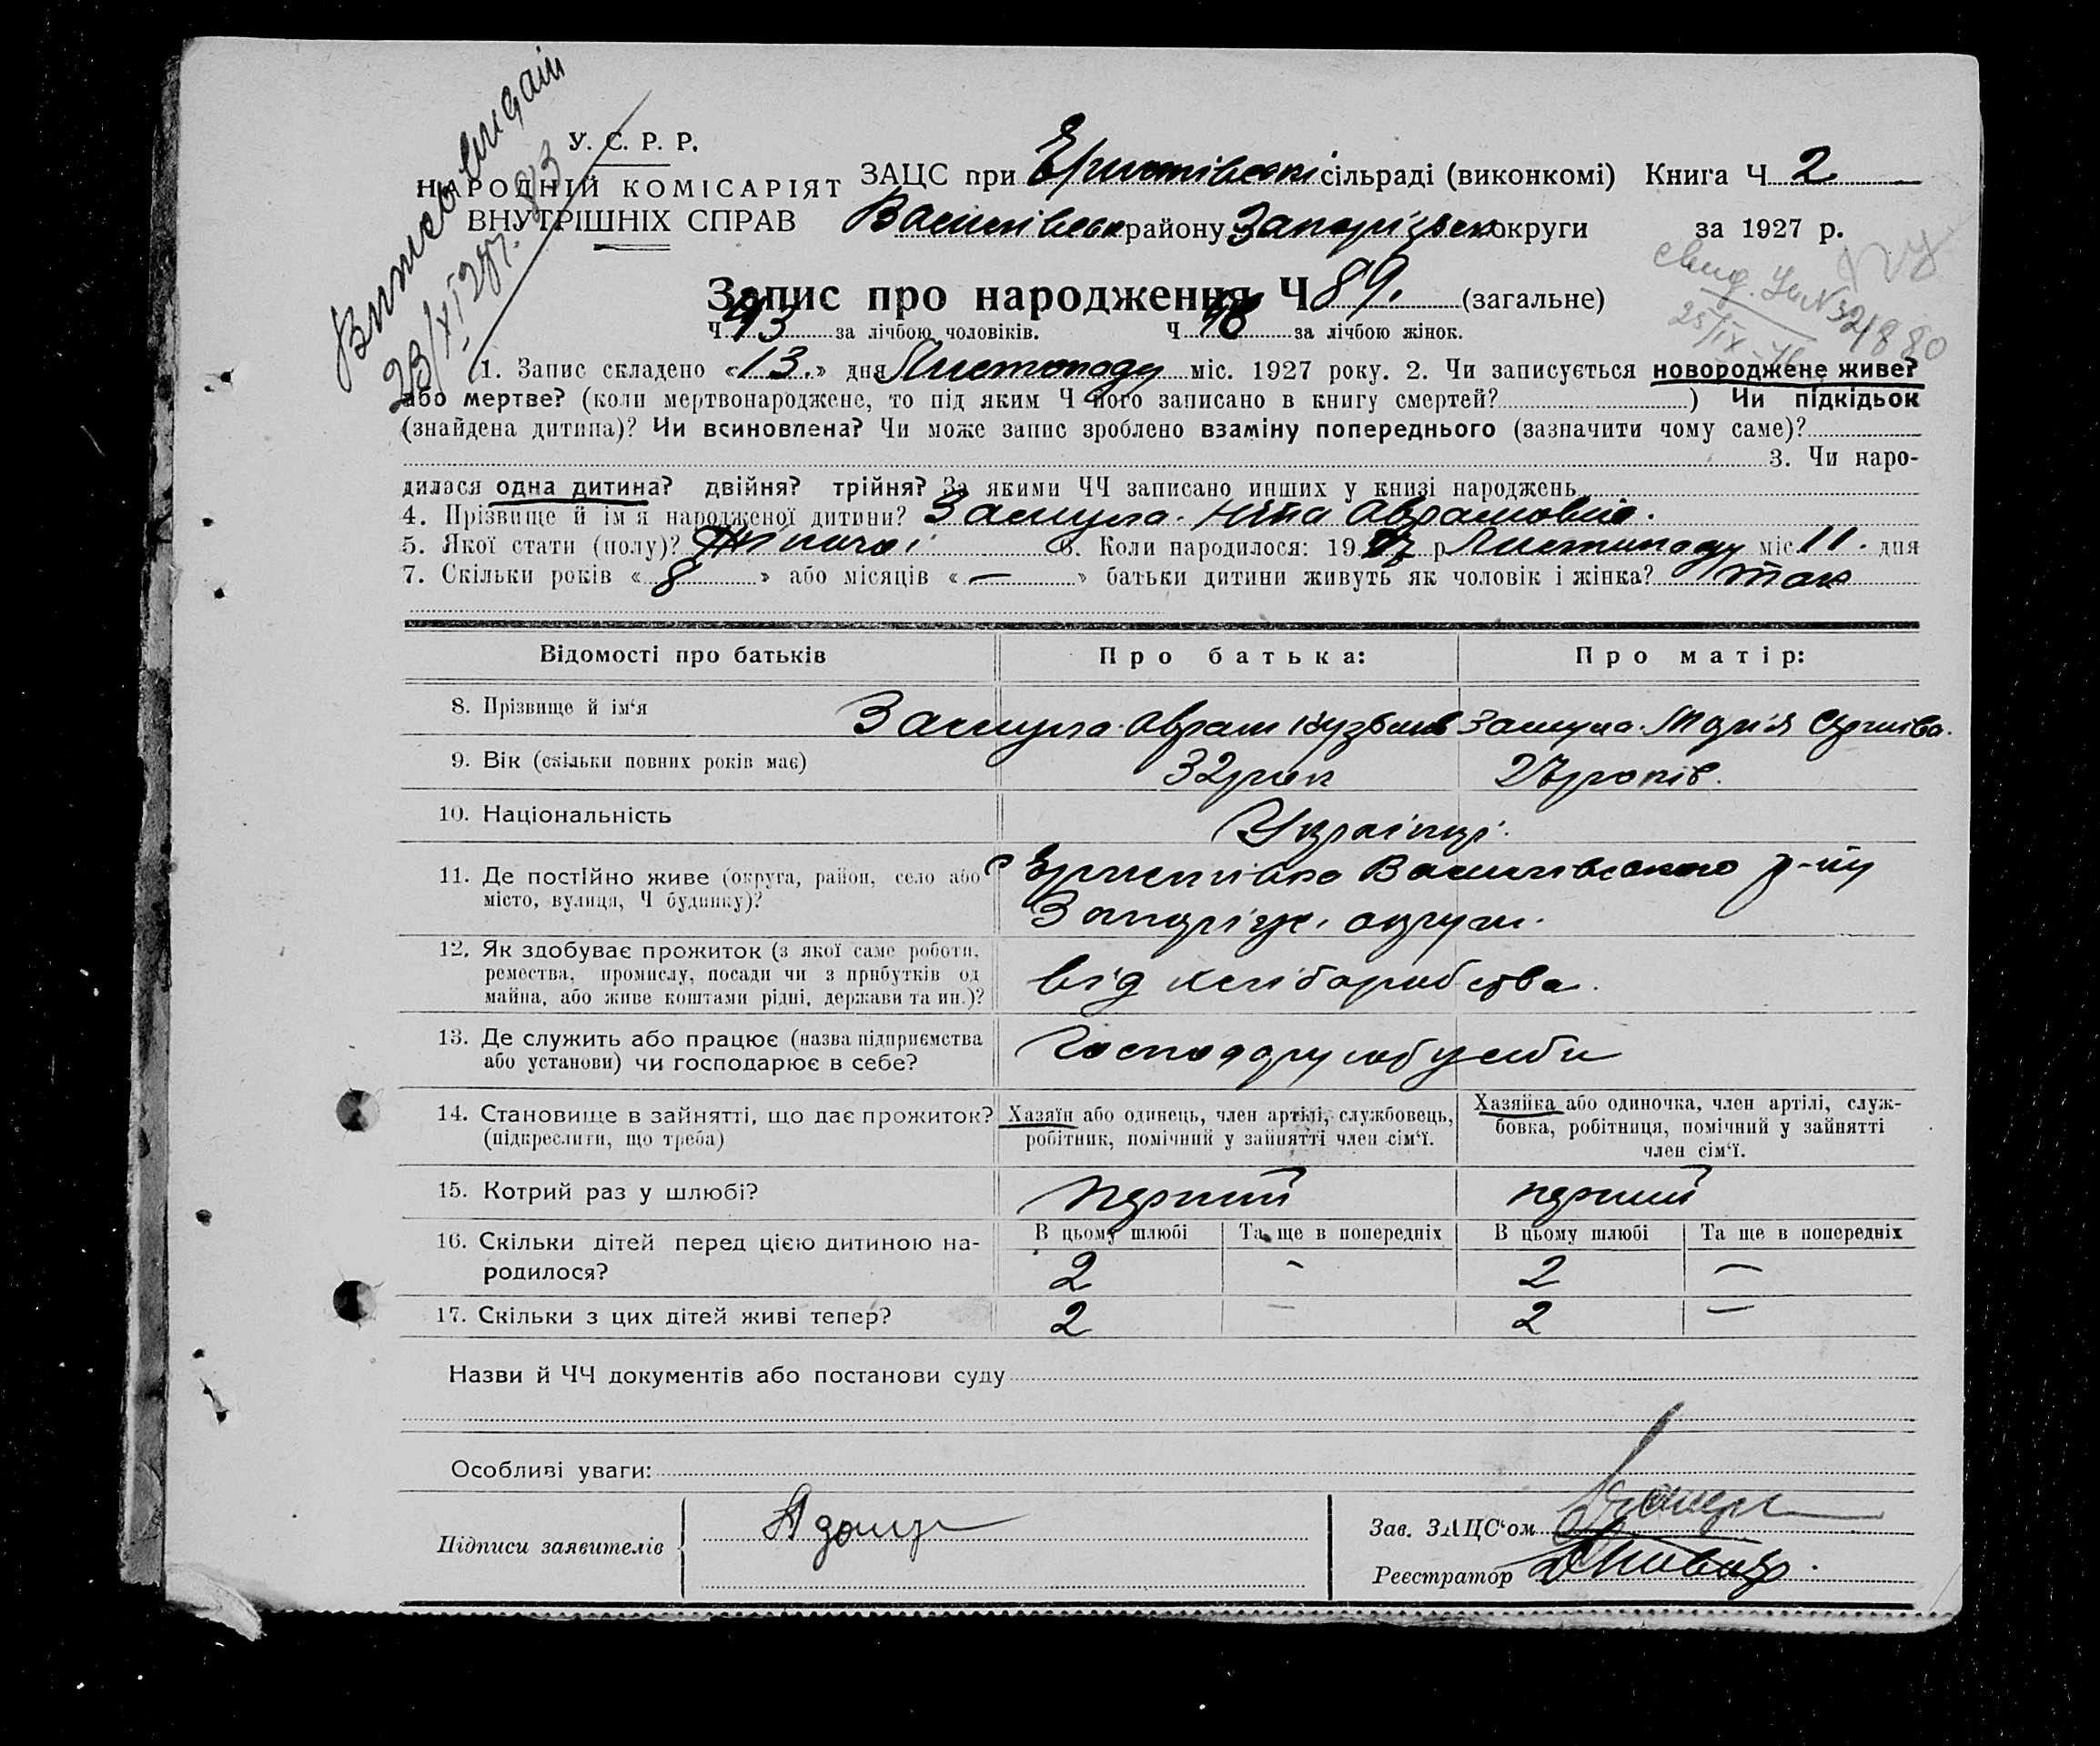 Виписъ видані
23/XI 27р. 83
У. С. Р. Р.
НАРОДНІЙ КОМІСАРІЯТ
ВНУТРІШНІХ СПРАВ
ЗАЦС при сільраді (виконкомі) Книга Ч 2.
Василівськ району Запорізьк округи за 1927 р.
Запис про народження Ч 89. (загальне)
Ч за лічбою чоловіків. Ч за лічбою жінок.
1. Запис складено «13.» дня Листопаду міс. 1927 року. 2. Чи записується новороджене живе?
або мертве? (коли мертвонароджене, то під яким Ч його записано в книгу смертей? ) Чи підкідьок
(знайдена дитина)? Чи всиновлена? Чи може запис зроблено взаміну попереднього (зазначити чому саме)?
3. Чи наро-
дилася одна дитина? двійня? трійня? За якими ЧЧ записано инших у книзі народжень
4. Прізвище й ім'я народженої дитини? Аврамовна.
5. Якої стати (полу)? Жіночої 6. Коли народилося: 1927 р Листопаду міс. 11. дня
7. Скільки років «8» або місяців «—» батьки дитини живуть як чоловік і жінка? так
Відомості про батьків
Про батька:
Про матір:
8. Прізвище й ім'я
Аврам Кузьмів
Марія
9. Вік (скільки повних років має)
32 рок
27 років.
10. Національність
Українці.
11. Де постійно живе (округа, район, село або
місто, вулиця, Ч будинку)?
Василівського р-ну
Запоріж. округи.
12. Як здобуває прожиток (з якої саме роботи,
ремества, промислу, посади чи з прибутків од
майна, або живе коштами рідні, держави та ин.)?
від хліборобства.
13. Де служить або працює (назва підприємства
або установи) чи господарює в себе?
Господарують у себи
14. Становище в зайнятті, що дає прожиток?
(підкреслити, що треба)
Хазяїн або одинець, член артілі, службовець,
робітник, помічний у зайнятті член сім'ї.
Хазяйка або одиночка, член артілі, служ-
бовка, робітниця, помічний у зайнятті
член сім'ї.
15. Котрий раз у шлюбі?
перший
перший
16. Скільки дітей перед цією дитиною на-
родилося?
В цьому шлюбі
Та ще в попередніх
В цьому шлюбі
Та ще в попередніх
2 - 2 —
17. Скільки з цих дітей живі тепер?
2 — 2 —
Назви й ЧЧ документів або постанови суду
Особливі уваги:
Підписи заявителів
Зав. ЗАЦС'ом
Реєстратор